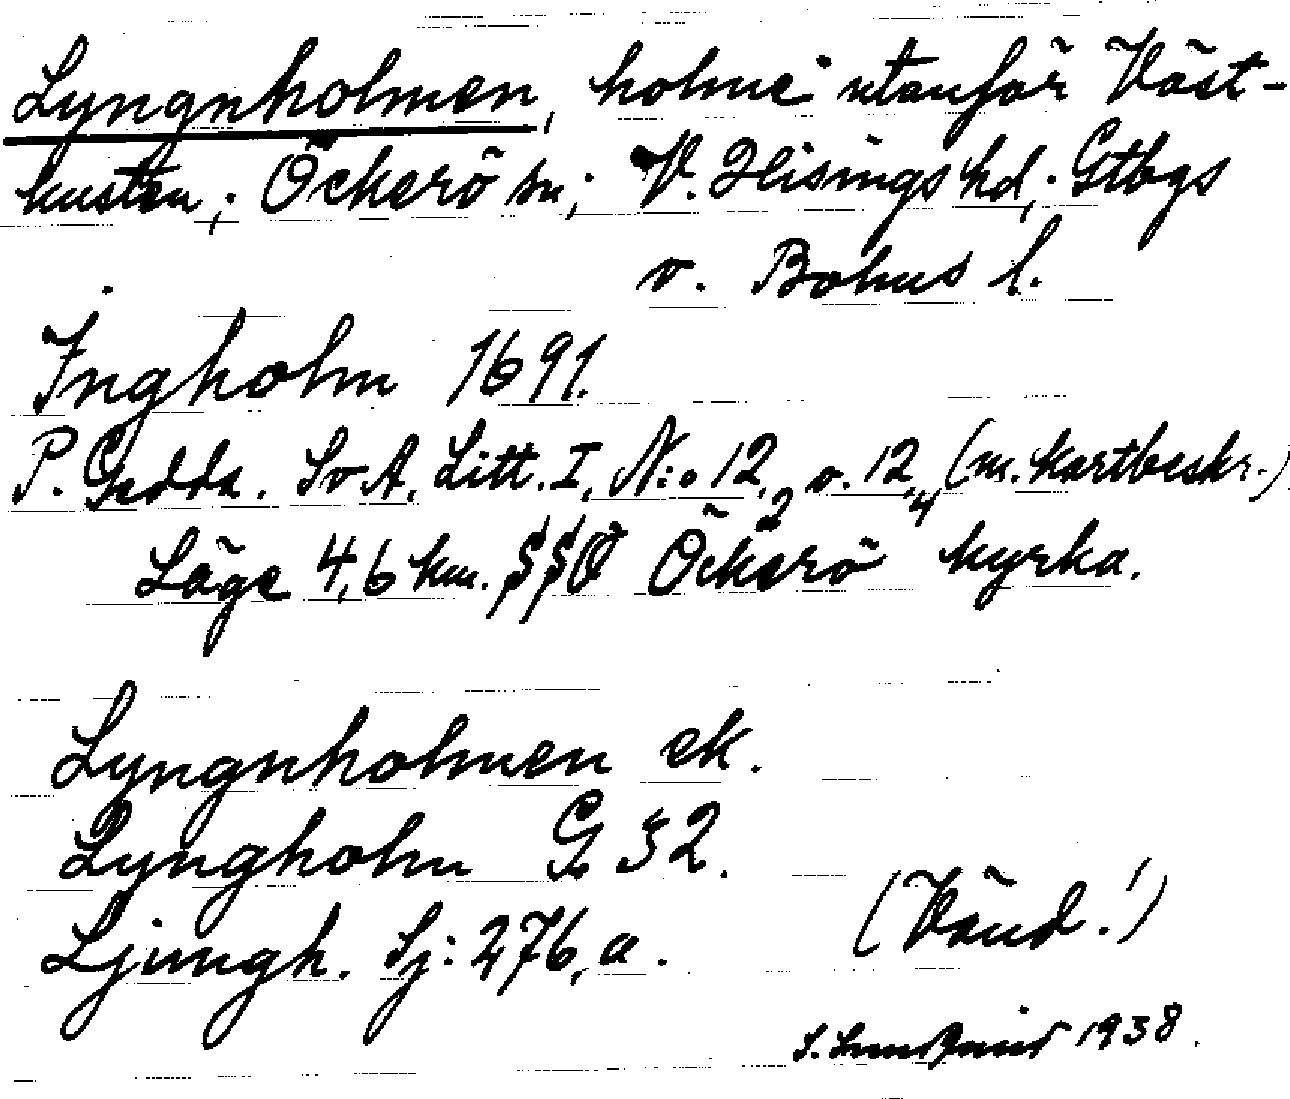 Lyngnholmen, holme utanför Väst-
kusten; Öckerö sn; V. Hisings hd; Gtbgs
o. Bohus l.
Ingholm 1691.
P. Gedda. Sv. A. Litt. I, N:o 12,2 o. 12,4 (m. kartbeskr.)
Läge 4,6 km. SSO Öckerö kyrka.
Lyngnholmen ek.
Lyngholm G. 32.
Ljungh. Sj: 276, a.
(Vänd!)
1938.